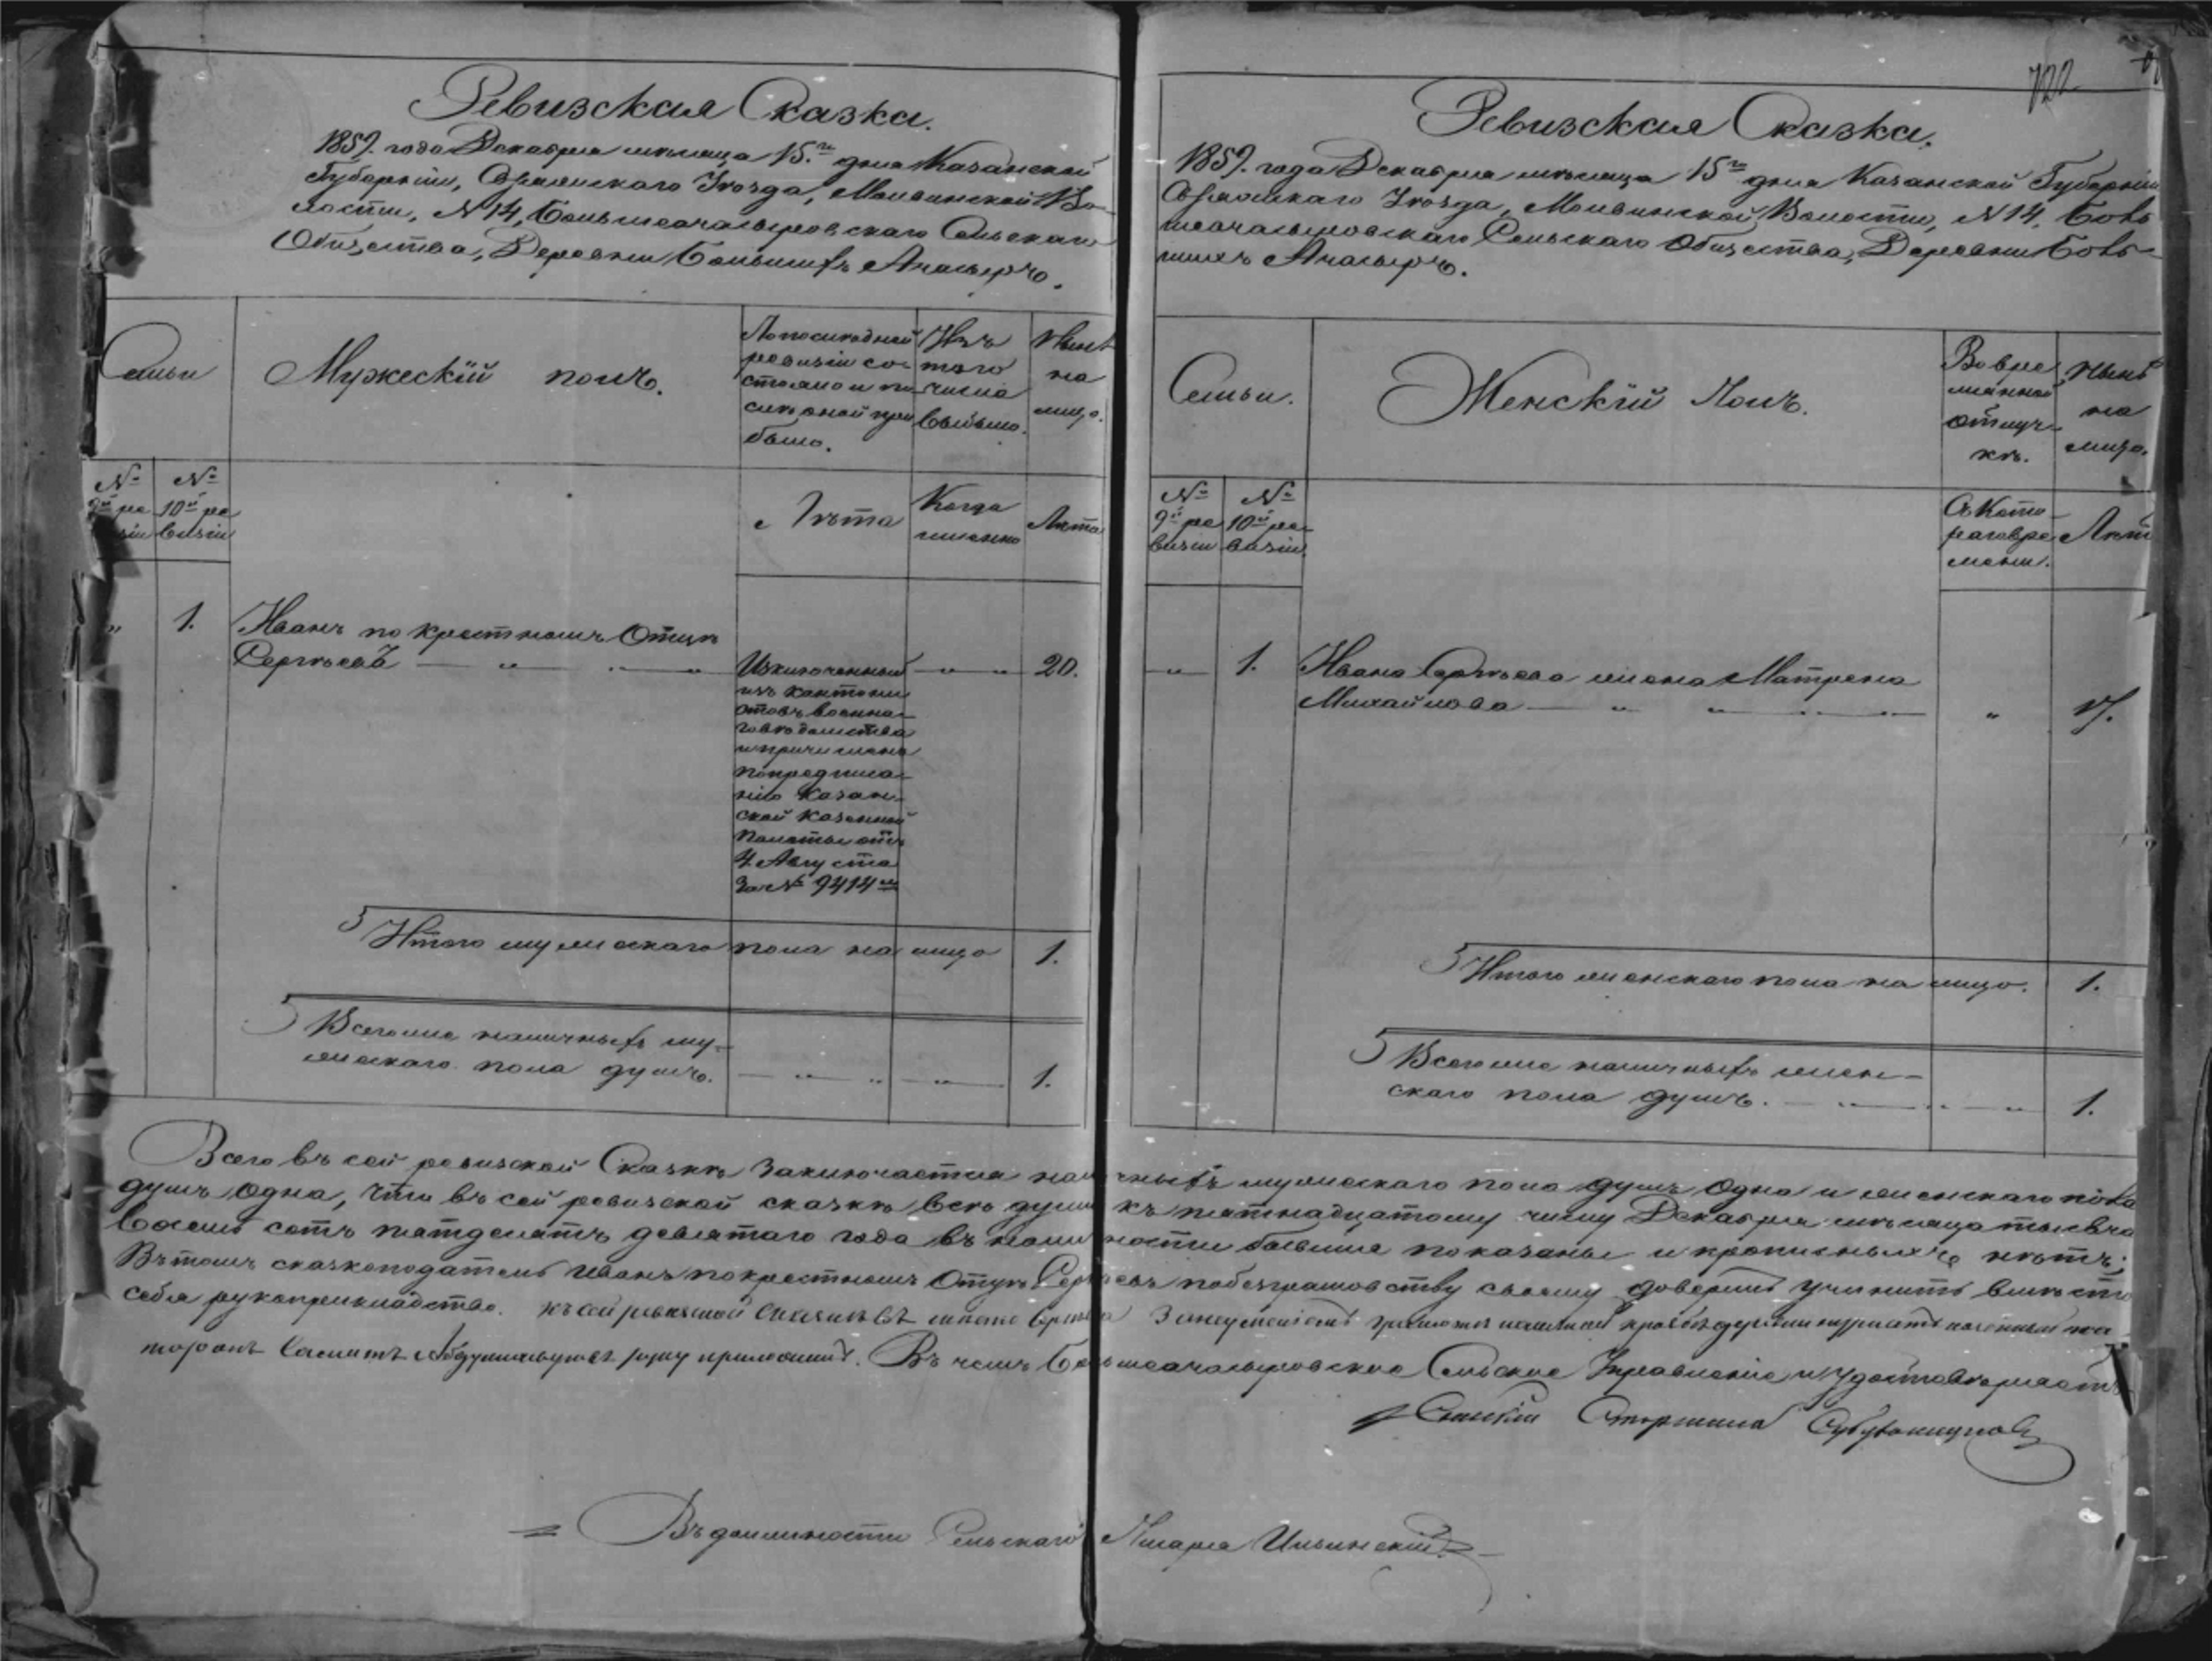 Ревизская Сказка.
1859. года Декабря мѣсяца 15.го дня Казанской
Губерніи, Уѣзда, Волости, N 14, Большеачасырскаго Сельскаго
Общества, Деревни Большихъ Ачасыръ.
Семьи
Мужескій полъ.
По послѣдней
ревизіи со-
стояло и по-
слѣ оной при
было.
Изъ
того
числа
выбыло.
Нынѣ
на
лицо.
№
9й ре
візіи
№
10й ре
визіи
Лѣта
Когда
именно
Лѣта
„ 1. Иванъ по крестномъ Отцѣ
Сергѣевъ — „ — „ — „ — „ 20.
Изключенный
изъ кантони
стовъ военна-
го вѣдомства
и причисленъ
по предписа-
нію Казан-
ской Казенной
Палаты отъ
4 Августа
За № 9414м
Итого мужескаго пола на лицо 1.
Всего же наличныхъ му-
жескаго пола душъ. — „ „ — „ — 1.
722
Ревизская Сказка.
1859. года Декабря мѣсяца 15го дня Казанской Губерніи
Уѣзда, Волости, N 14. Боль
Сельскаго Общества, Деревни Боль-
шихъ Ачасыръ.
Семьи.
Женскій Полъ.
Во вре
мянной
отлуч-
кѣ.
Нынѣ
на
лицо.
№
9й ре
визіи
№
10й ре-
визіи.
Съ Кото
раго вре
мени.
Лѣт
„ 1. Ивана Сергѣева жена Матрена
Михайлова — „ „ — „ — „ „ 17.
Итого женскаго пола на лицо. 1.
Всего же наличныхъ жен-
скаго пола душъ. — „ — „ — „ 1.
Всего въ сей ревизской Сказкѣ заключается наличныхъ мужескаго пола душъ одна и женскаго пола
душъ одна, что въ сей ревизской сказкѣ всѣ души къ пятнадцатому числу Декабря мѣсяца тысяча
восемь сотъ пятдесятъ девятаго года въ наличности бывшіе показаны и прописныхъ нѣтъ;
Въ томъ сказкоподатель Иванъ по крестномъ Отцѣ Сергѣевъ по безграмотству своему довѣрилъ учинить вмѣсто
себя рукоприкладство. Къ сей ревизской сказкѣ въ мѣсто Сергѣева За неумѣніемъ грамоты
руку приложилъ. Въ чемъ Сельское Управленіе и удостовѣряетъ
Сельскій Старшина
Въ должности Сельскаго Писаря Ильинскій